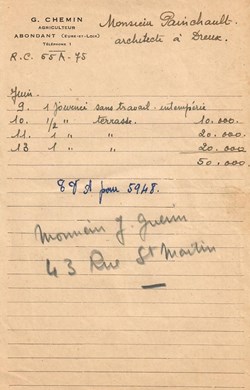 G. CHEMIN
AGRICULTEUR
ABONDANT (EURE-ET-LOIR)
TÉLÉPHONE 1
Monsieur Painchault
architecte à Dreux.
R.C. 55A-75
Juin
9. 1 journée sans travail intempérie
10. 1/2 " terrasse. 10.000
11. 1 " " 20.000
13 1 " " 20.000
50.000
pour 5948.
Monsieur J. Guerin
43 Rue St Martin